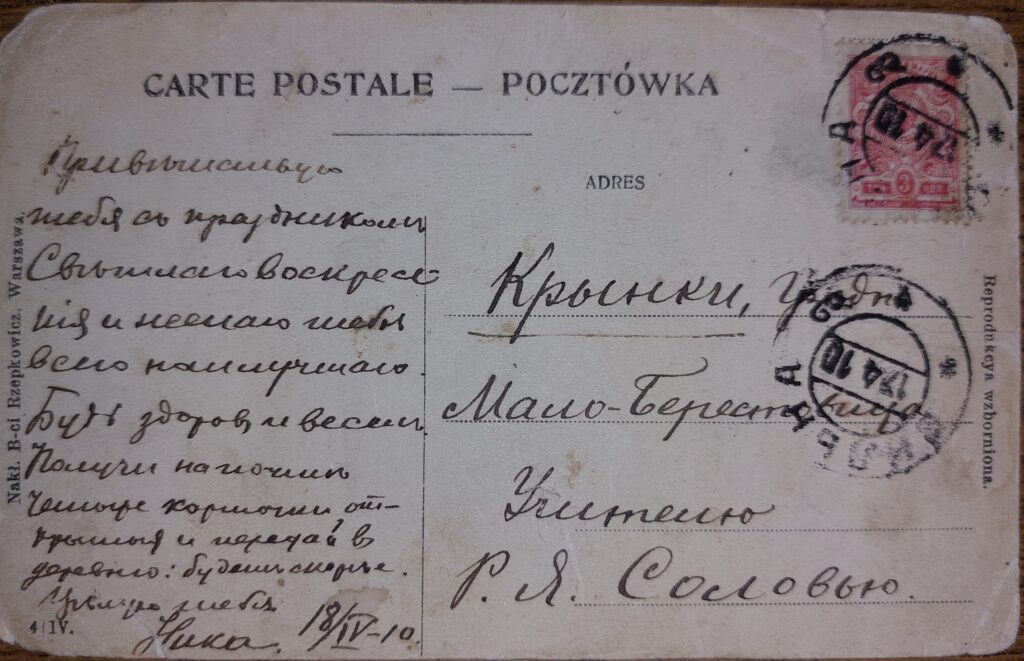 CARTE POSTALE — POCZTÓWKA
ADRES
Привѣтствую
тебя съ праздникомъ
Свѣтлаго воскресе
нія и желаю тебѣ
всего наилучшаго.
Будь здоровъ и веселъ.
Получи на почтѣ
четыре карточки от-
крытыя и передай в
деревню: будешь скорѣе.
Цѣлую тебя
Ника. 18/IV-10.
4|IV.
Nakł. B-ci Rzepkowicz, Warszawa.
Крынки, Гродн
Мало-Берестовица
Учителю
Р. Я. Соловью.
Reprodukcya wzbroniona.
3
17 4 10
ВИЛЬНА
17 4 10